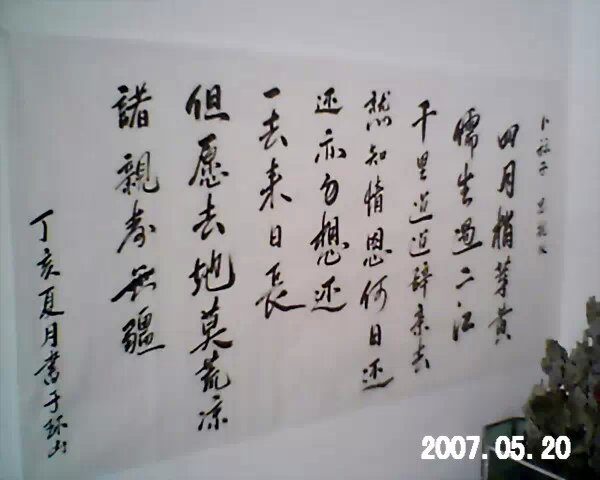 卜祘子
四月梢芽黄
儒生過二江
千里迢迢辞亲去
知情恩何日还
还亦勿想还
一去来日長
但愿去地莫荒凉
諸親寿無疆
丁亥夏月書于环山
2007.05.20